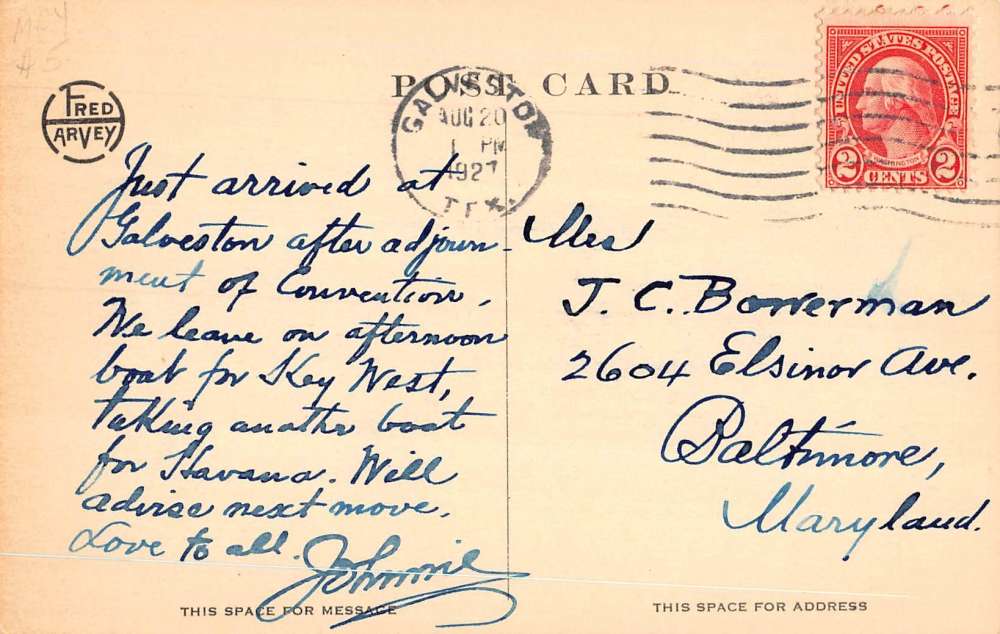 POST CARD
FRED
HARVEY
GALVESTON
AUG 20
1 PM
1927
TEX.
UNITED STATES POSTAGE
WASHINGTON
2 CENTS 2
Just arrived at
Galveston after adjourn-
ment of Convention.
We leave on afternoon
boat for Key West,
taking another boat
for Havana. Will
advise next move.
Love to all. Johnnie
Mrs
J. C. Bowerman
2604 Elsinor Ave.
Baltimore,
Maryland.
THIS SPACE FOR MESSAGE
THIS SPACE FOR ADDRESS